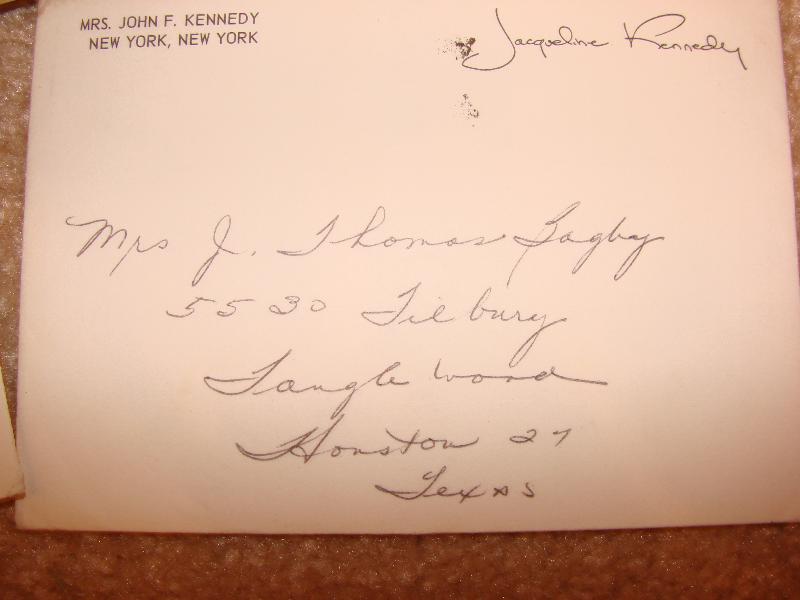 MRS. JOHN F. KENNEDY
NEW YORK, NEW YORK
Jacqueline Kennedy
Mrs J. Thomas Bagby
5530 Tilbury
Tangle wood
Houston 27
Texas